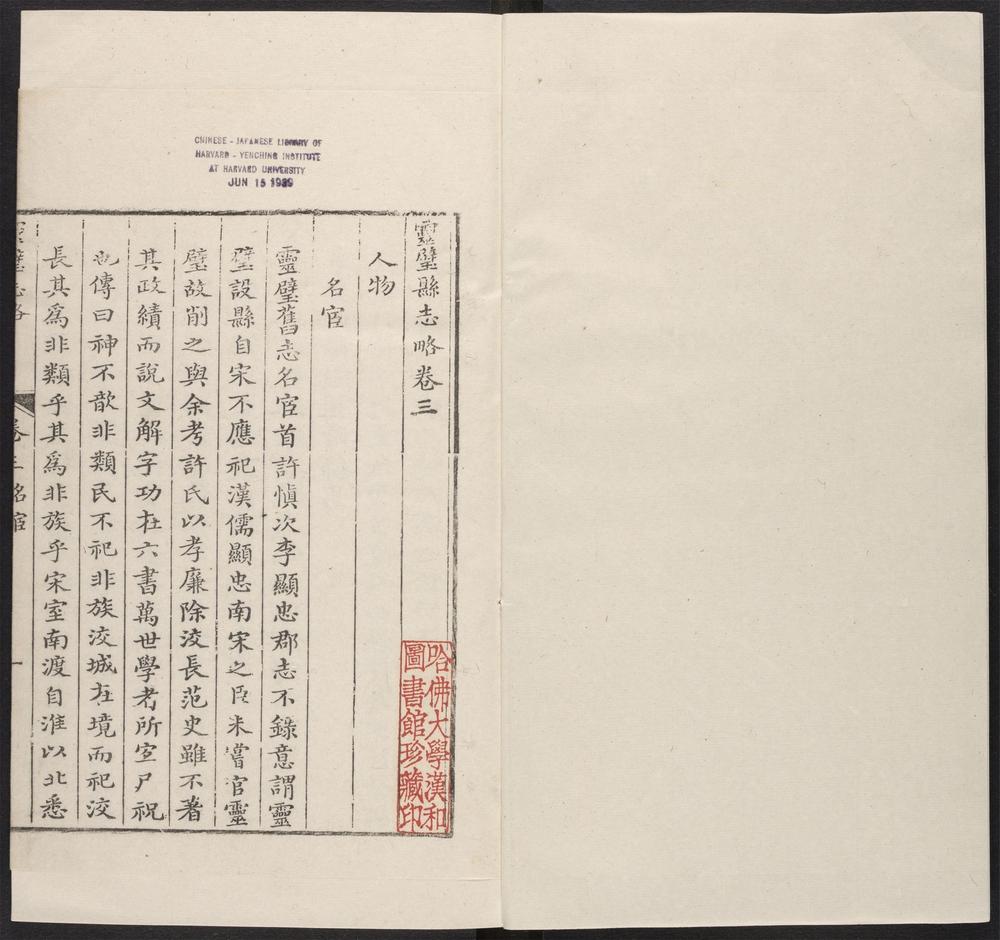 CHINESE - JAPANESE LIBRARY OF
HARVARD - YENCHING INSTITUTE
AT HARVARD UNIVERSITY
JUN 15 1939
靈璧縣志略卷三
人物
名宦
靈璧舊志名宦首許愼次李顯忠郡志不錄意謂靈
璧設縣自宋不應祀漢儒顯忠南宋之臣未嘗官靈
璧故削之與余考許氏以孝廉除洨長范史雖不著
其政績而說文解字功在六書萬世學者所宜尸祝
也傳曰神不歆非類民不祀非族洨城在境而祀洨
長其爲非類乎其爲非族乎宋室南渡自淮以北悉
靈璧志略
卷三名宦
一
哈佛大學漢和
圖書館珍藏印